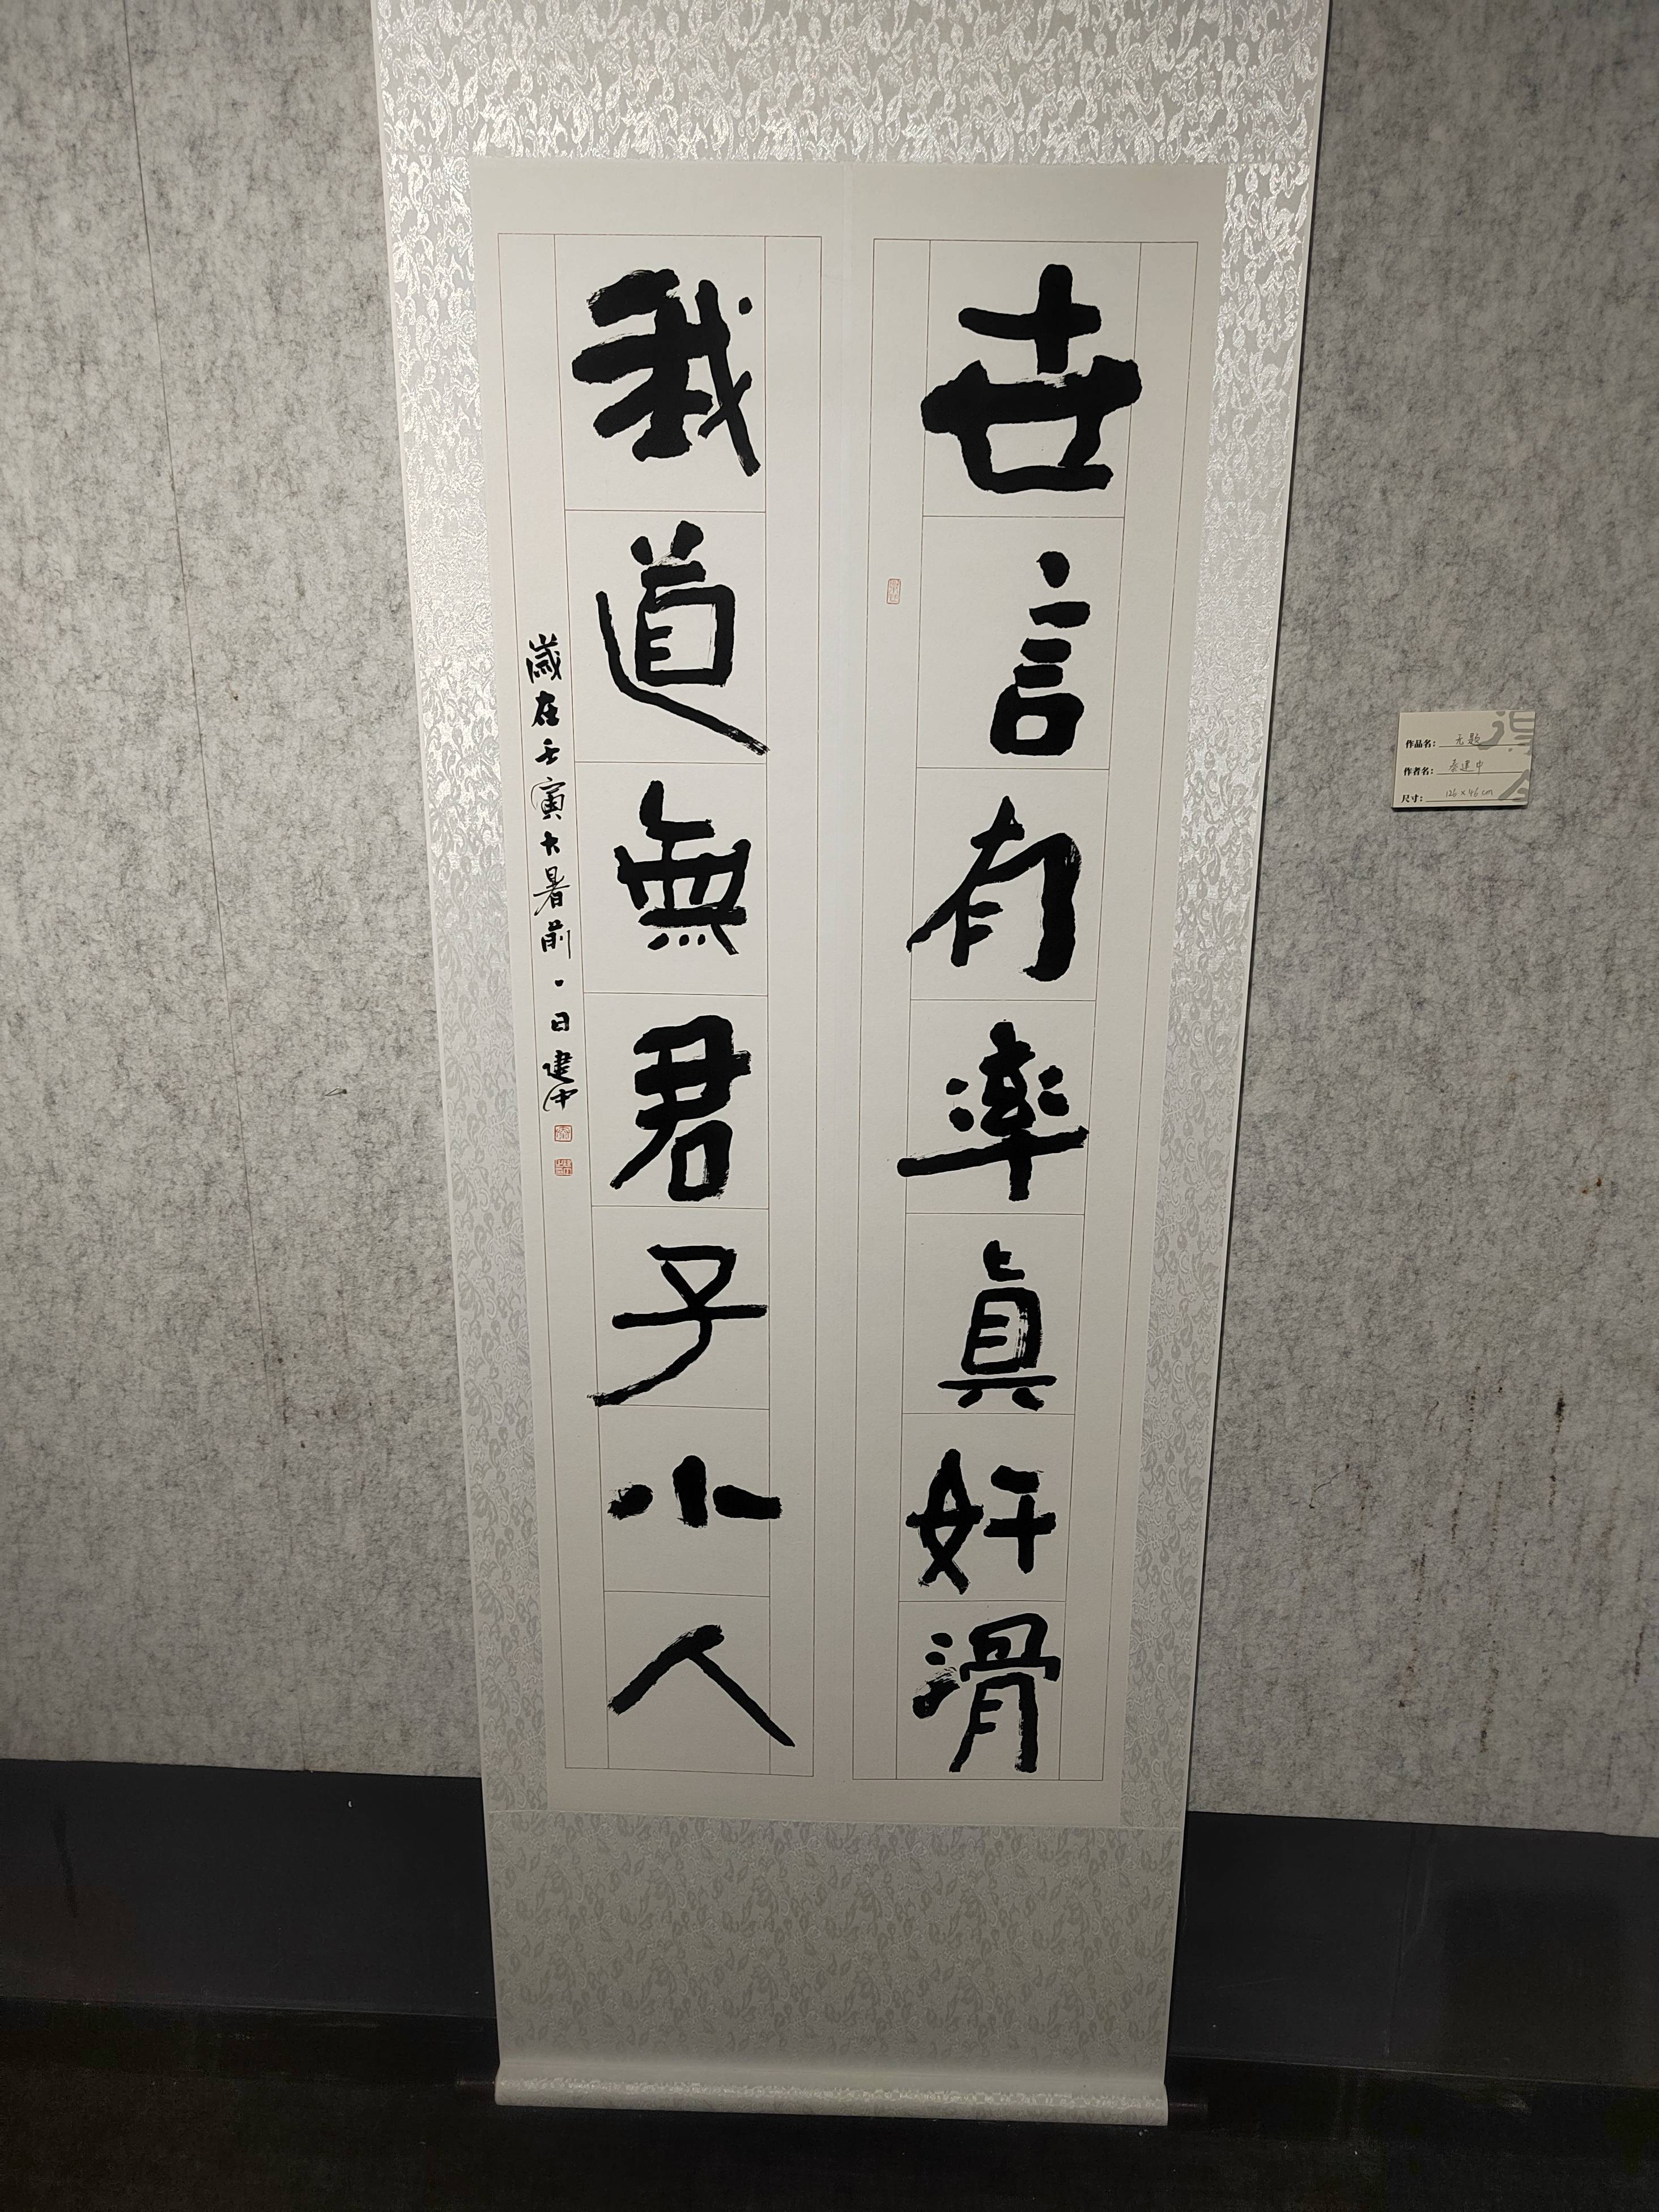 世言有率真奸滑
我道無君子小人
歲在壬寅大暑前一日建中
作品名：无题
作者名：秦建中
尺寸：136×46cm